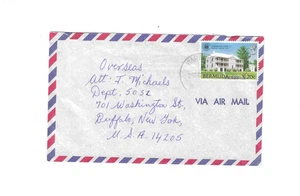 Overseas
Att: J Michaels
Dept. 5032
701 Washington St,
Buffalo, New York,
U.S.A 14205
BERMUDA
VIA AIR MAIL